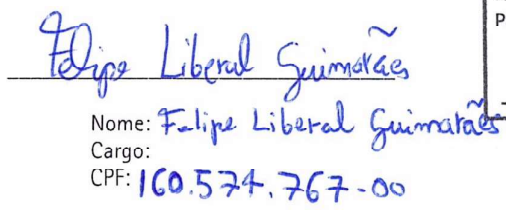 Felipe Liberal Guimarães
P
Nome: Felipe Liberal Guimarães
Cargo:
CPF: 160.574.767-00